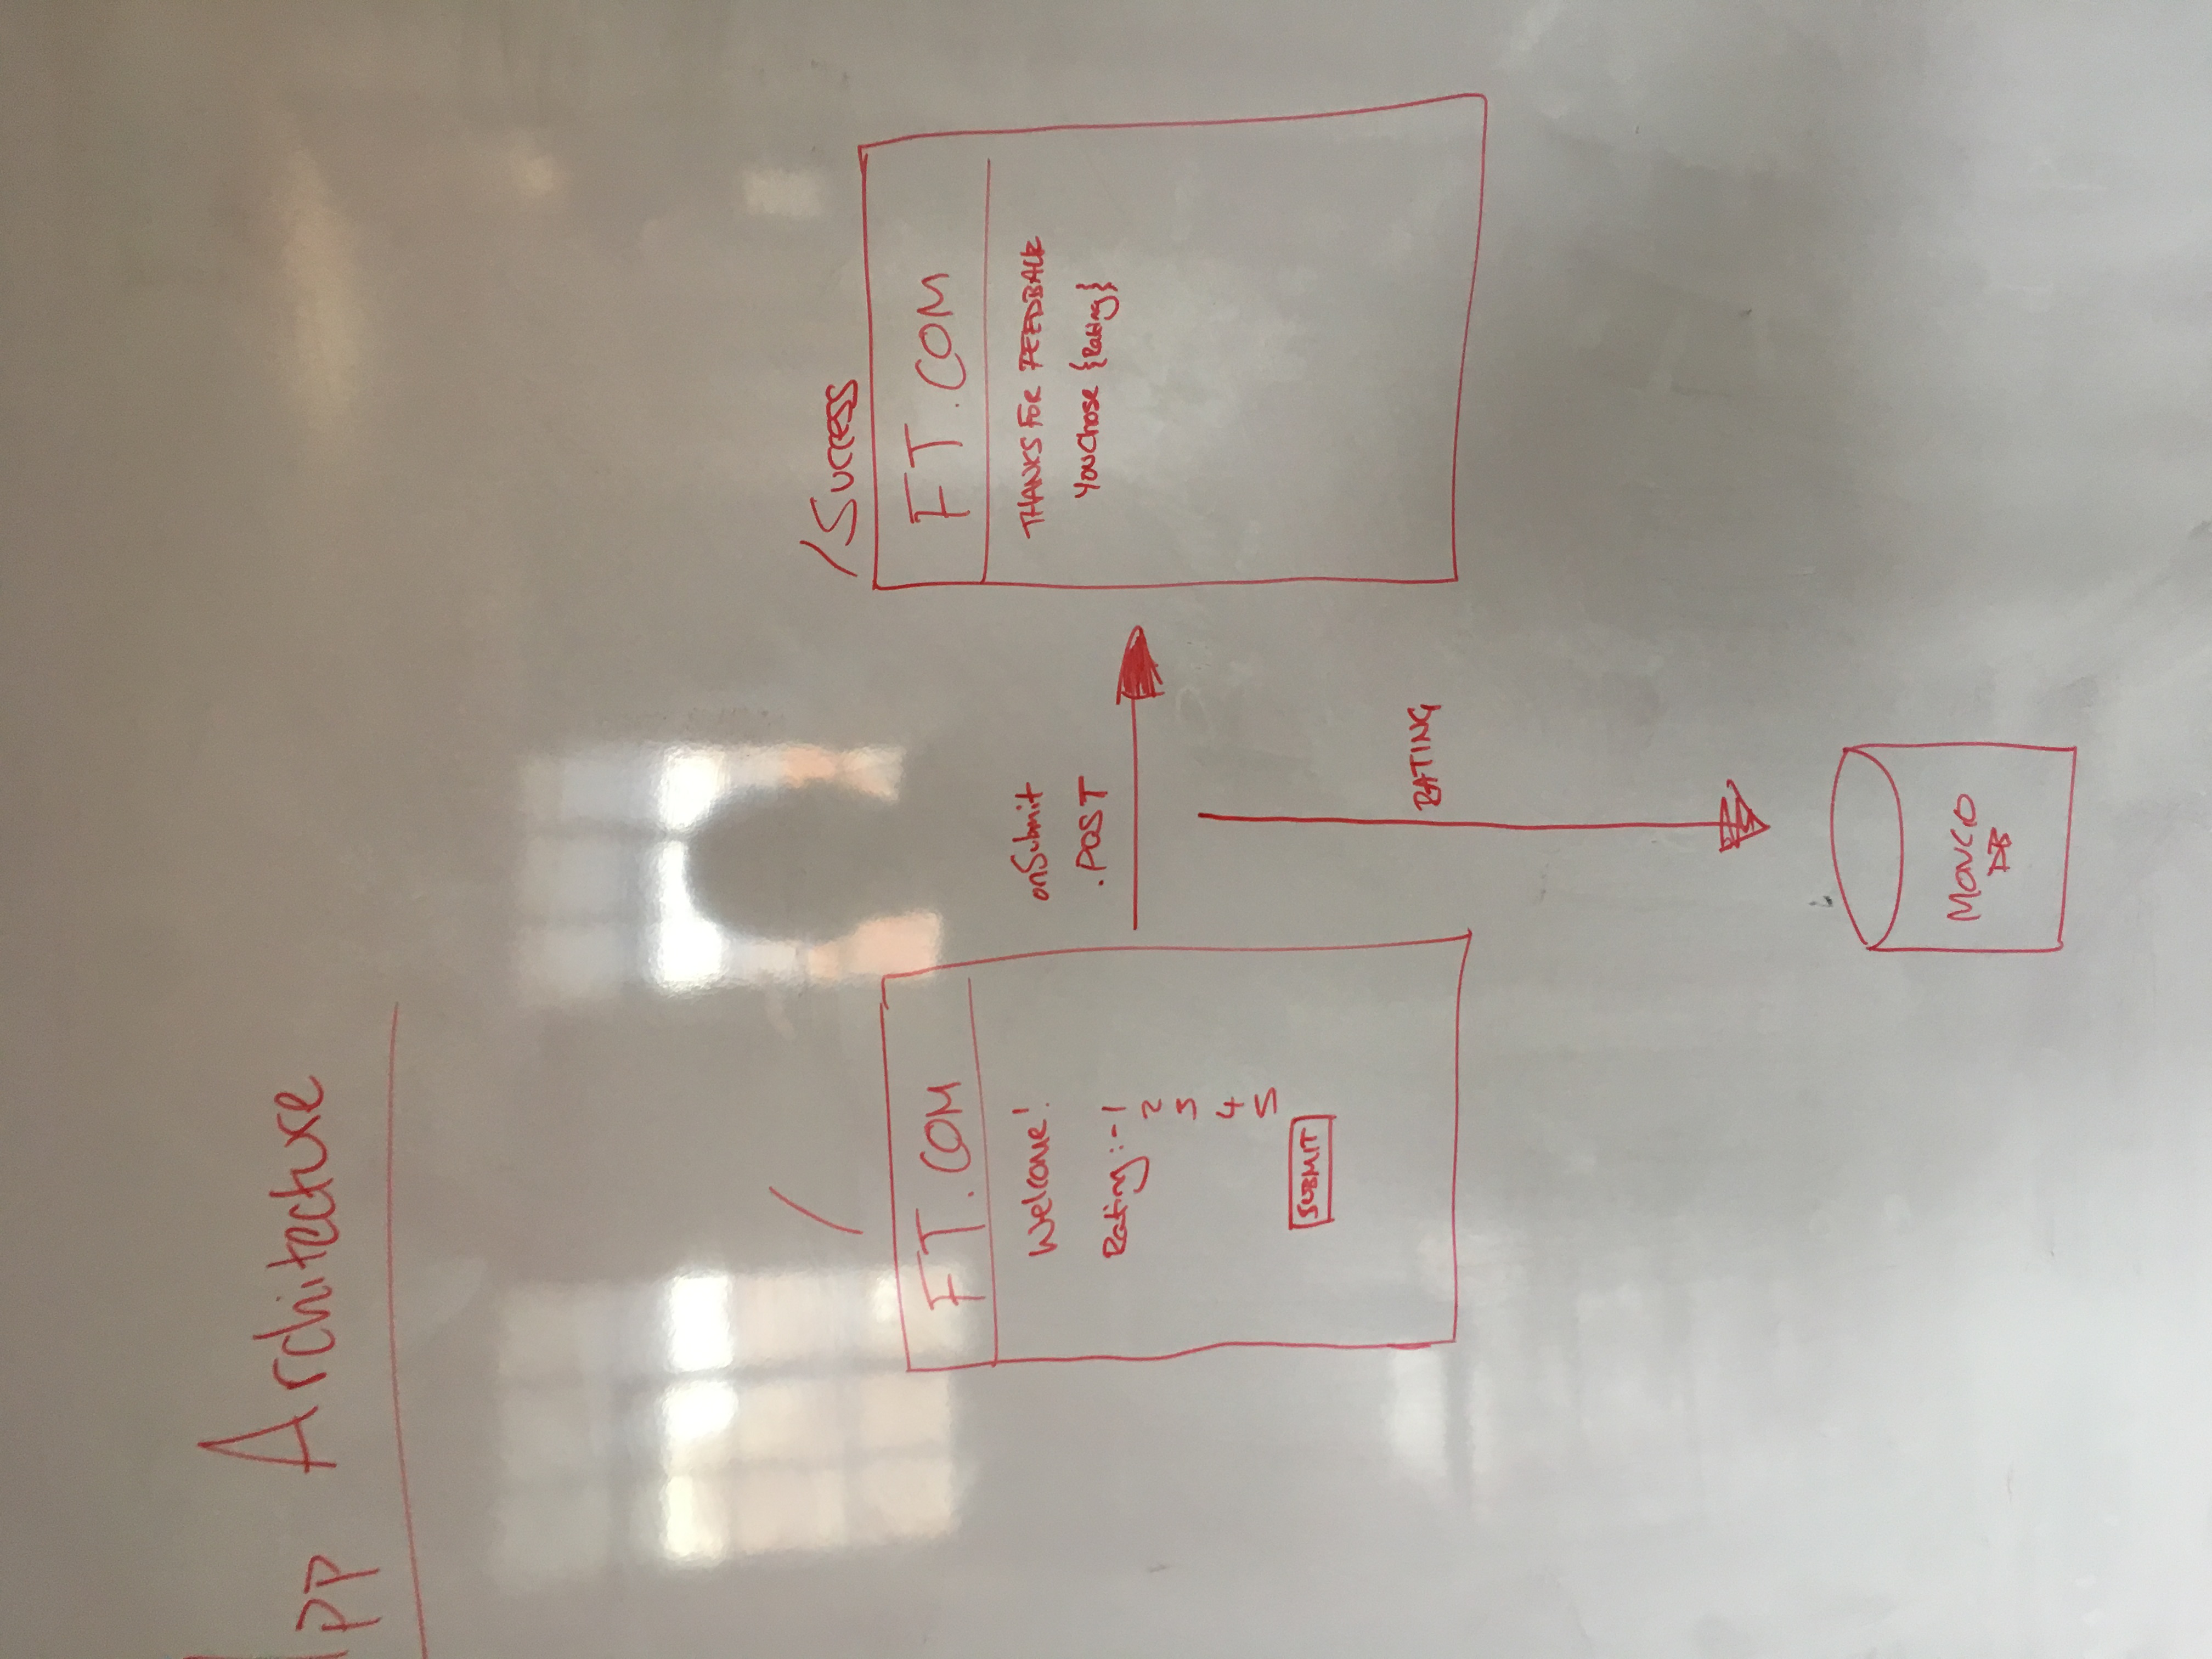 App Architecture
/
FT.COM
Welcome!
Rating:- 1
2
3
4
5
SUBMIT
onSubmit
.POST
RATING
/Success
FT.COM
THANKS FOR FEEDBACK
You Chose {Rating}
MONGO
DB